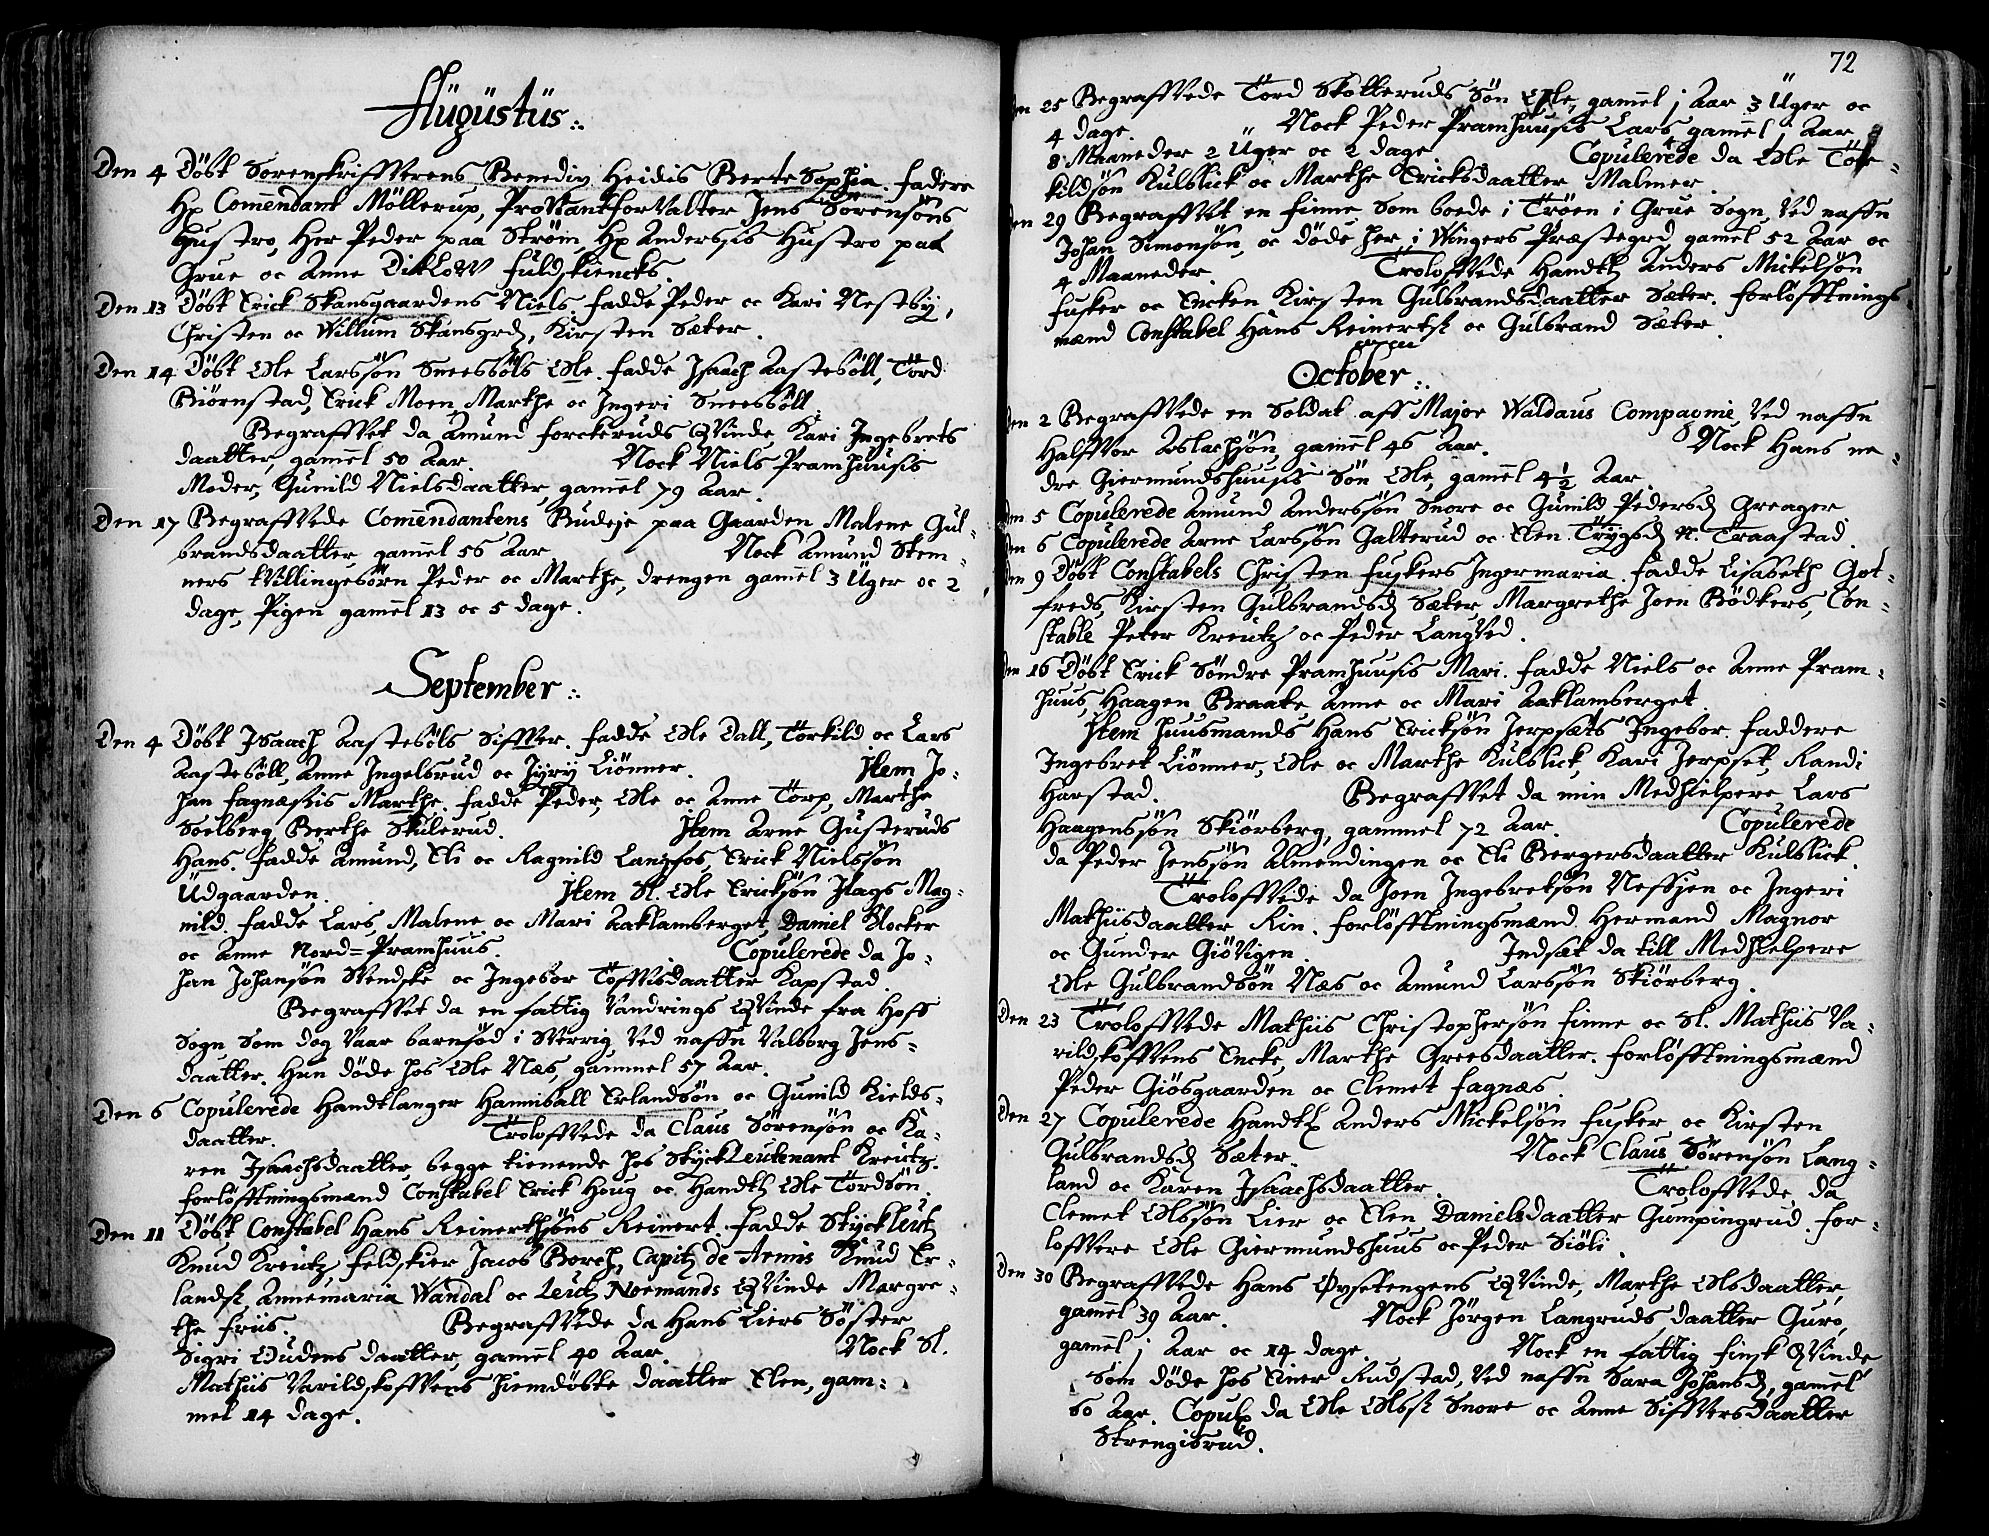 Augustus.
Den 4 Döbt Sorenskrifverens Benedix Heidis Berte Sophia. Faddere
Hr Comendant Möllerup, Proviantforvalter Jens Sörensöns
Hustro, Her Peder paa Ström, Hr Anderssis Hustro paa
Grue oc Anne Ditlow Fuldskiencks.
Den 13 Döbt Erick Skansgaardens Niels. Fadde Peder oc Kari Nestby,
Christen oc Willum Skansgrd, Kirsten Sæter.
Den 14 Döbt Ole Larssön Sneesböls Ole. Fadde Isaach Aasteböll, Tord
Biörnstad, Erick Moen, Marthe oc Ingeri Sneesböll.
Begraffvet da Amund Forckeruds Qvinde Kari Ingebrets
daatter, gamel 50 Aar. Nock Niels Pramhuusis
Moder, Gunild Nielsdaatter, gamel 79 Aar.
Den 17 Begraffvede Comendantens Budeje paa Gaarden Malene Gul-
brandsdaatter gamel 56 Aar Nock Amund Stem-
ners tvillingebörn Peder oc Marthe, drengen gamel 3 Uger oc 2
dage, Pigen gamel 13 oc 5 dage.
September.
Den 4 Döbt Isaach Aasteböls Siffver. Fadde Ole Dall, Törkild oc Lars
Aasteböll, Anne Ingelsrud oc Jyry Liönner. Item Jo-
han Fagnæssis Marthe. Fadde Peder, Ole oc Anne Torp, Marthe
Soelberg, Berthe Skulerud. Item Arne Gusteruds
Hans. Fadde Amund, Eli oc Ragnild Langfos, Erick Nielssön
Udgaarden. Item Sl. Ole Ericksön Ilags Mag-
nild. Fadde Lars, Malene oc Mari Aaklamberget, Daniel Klocker
oc Anne Nord-Pramhuus. Copulerede da Jo-
han Johansön Svendske oc Ingebor Toffvisdaatter Kapstad.
Begraffvet da en fattig Vandrings Qvinde fra Hoff
Sogn Som dog Vaar barnföd i Sverrig Ved naffn Valborg Jens-
daatter. Hun döde hos Ole Næs, gammel 57 Aar.
Den 6 Copulerede Handtlanger Hanniball Erlandsön oc Gunild Kields-
daatter. Troloffvede da Claus Sörensön oc Ka-
ren Isaachsdaatter, begge tienende hos Styckleutenant Kreutz.
Forlöfftningsmænd Constabel Erick Houg oc Handtl Ole Tordsön.
Den 11 Döbt Constabel Hans Reinertssöns Reinert. Fadde Stÿckleut
Knud Kreutz, Feldskier Jacob Borch, Capit de Armis Knud Er-
lands Annemaria Wandal oc Leut Normands Qvinde Margre-
the Friis. Begraffvede da Hans Liers Söster
Sigri Oudens daatter, gamel 40 Aar. Nock Sl.
Mathiis Varildskoffvens hiemdöbte daatter Elen, gam-
mel 14 dage.
72
Den 25 Begraffvede Tord Skotteruds Sön Ole, gamel j Aar 3 Uger oc
4 dage. Nock Peder Pramhuusis Lars gamel j Aar
8 Maaneder 2 Uger oc 2 dage Copulerede da Ole Tör-
kildsön Kulblick oc Marthe Ericksdaatter Malmer.
Den 29 Begraffvet en Finne Som boede i Tröen i Grue Sogn, Ved naffn
Johan Simonsön, oc döde her i Wingers Præstegrd, gamel 52 Aar oc
4 Maaneder. Troloffvede Handtl Anders Mickelsön
Fusker oc Encken Kirsten Gulbrandsdaatter Sæter. Forlöfftnings
mænd Constabel Hans Reinerts oc Gulbrand Sæter.
October.
Den 2 Begraffvede en Soldat aff Major Waldaus Compagnie, Ved naffn
Halffvor Aslachsön, gamel 46 Aar. Nock Hans ne-
dre Giermundshuusis Sön Ole, gamel 4 1/2 Aar
Den 5 Copulerede Amund Anderssön Snore oc Gunild Pedersd Greager
Den 6 Copulerede Arne Larssön Galterud oc Elen Trygsd N. Traastad.
Den 9 Döbt Constabels Christen Fuskers Ingermaria. Fadde Lisabeth Got-
freds, Kirsten Gulbrandsd Sæter, Margrethe Joen Bödkers, Con-
stable Peter Kreutz oc Peder Langved.
Den 16 Döbt Erick Söndre Pramhuusis Mari. Fadde Niels oc Anne Pram-
huus, Haagen Braate, Anne oc Mari Aaklamberget.
Item Huusmands Hans Ericksön Jerpsets Ingebor. Faddere
Ingebret Liönner, Ole oc Marthe Kulblick, Kari Jerpset, Randi
Harstad. Begraffvet da min Medhielpere Lars
Haagenssön Skiörberg, gammel 72 Aar. Copulerede
da Peder Jenssön Almendingen oc Eli Bergersdaatter Kulblick.
Troloffvede da Joen Ingebretsön Nefsjen oc Ingeri
Mathiisdaatter Rin. Forlöfftningsmænd Hermand Magnor
oc Gunder Giövigen. Indsat da till Medhielpere
Ole Gulbrandsön Næs oc Amund Larssön Skiörberg.
Den 23 Troloffvede Mathiis Christophersön Finne oc Sl. Mathiis Va-
rildskoffvens Encke, Marthe Greesdaatter. Forlöfftningsmænd
Peder Giösgaarden oc Clemet Fagnæs.
Den 27 Copulerede Handtl Anders Mickelsön Fusker oc Kirsten
Gulbrandsd Sæter. Nock Claus Sörensön Lang-
land oc Karen Isaachsdaatter. Troloffvede da
Clemet Olssön Lier oc Elen Danielsdaatter Gumpingrud. For-
loffvere Ole Giermundshuus oc Peder Siöli.
Den 30 Begraffvede Hans Öysetengens Qvinde, Marthe Olsdaatter,
gamel 39 Aar. Nock Jörgen Langruds daatter Guro,
gamel j Aar oc 14 dage. Nock en fattig finsk Qvinde
Som döde hos Einer Rudstad, Ved naffn Sara Johansd, gamel
60 Aar. Copul da Ole Olss Snore oc Anne Siffversdaatter
Strengisrud.